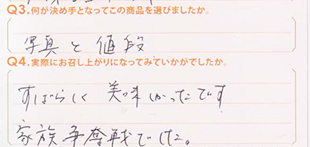 Q3.何が決め手となってこの商品を選びましたか。
写真と値段
Q4.実際にお召し上がりになってみていかがでしたか。
すばらしく美味しかったです
家族争奪戦でした。